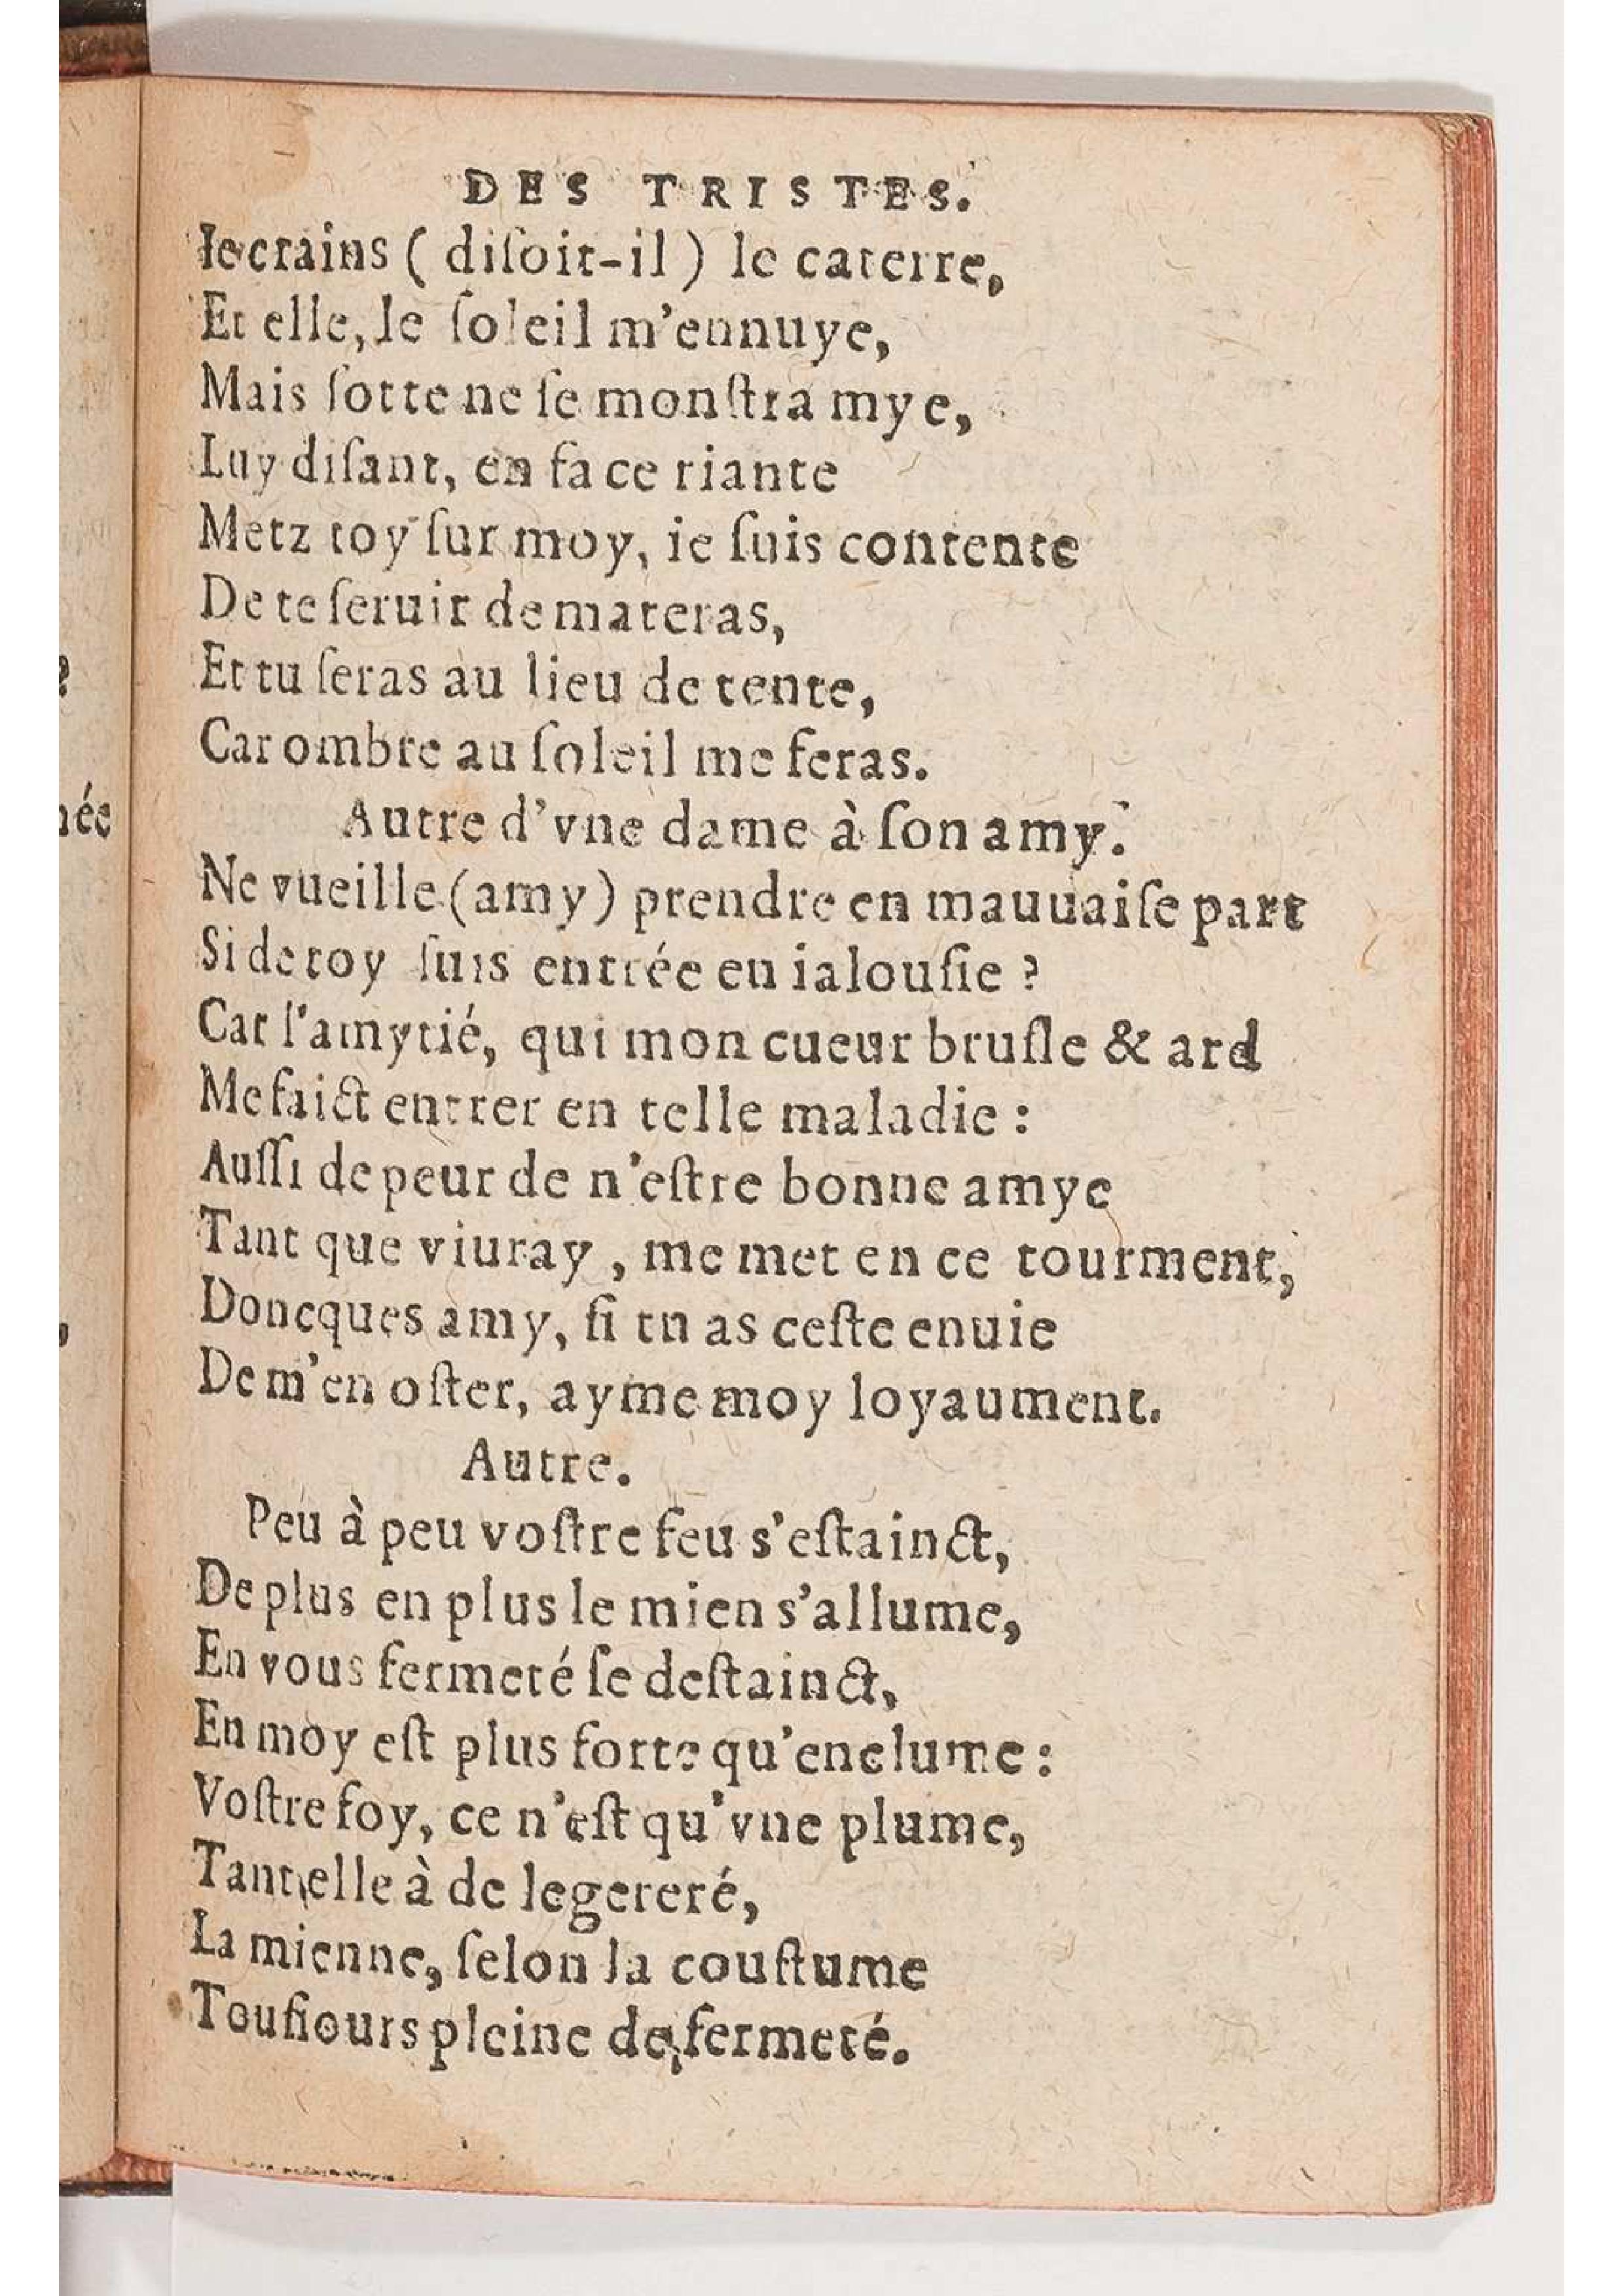 DES TRISTES.
Ie crains ( diſoit-il ) le caterre,
Et elle, le ſoleil m'ennuye,
Mais ſotte ne ſe monſtra mye,
Luy diſant, en face riante
Metz toy ſur moy, ie ſuis contente
De te ſeruir de materas,
Et tu ſeras au lieu de tente,
Car ombre au ſoleil me feras.
Autre d'vne dame à ſon amy.
Ne vueille (amy) prendre en mauuaiſe part
Si de toy ſuis entrée en ialouſie ?
Car l'amytié, qui mon cueur bruſle & ard
Me faict entrer en telle maladie :
Auſſi de peur de n'eſtre bonne amye
Tant que viuray , me met en ce tourment,
Doncques amy, ſi tu as ceſte enuie
De m'en oſter, ayme moy loyaument.
Autre.
Peu à peu voſtre feu s'eſtainct,
De plus en plus le mien s'allume,
En vous fermeté ſe deſtainct,
En moy eſt plus forte qu'enclume :
Voſtre foy, ce n'eſt qu'vne plume,
Tant elle à de legereté,
La mienne, ſelon la couſtume
Touſiours pleine de fermeté.
?
née
,